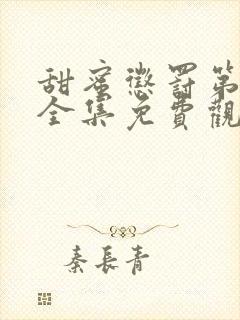 甜蜜懲罰第
全集免費觀
秦長青